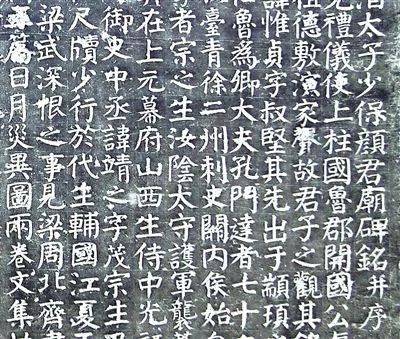 太子少保顏君廟碑銘并序
禮儀使上柱國魯郡開國公
祖德敷演家聲故君子之觀其銘
諱惟貞字叔堅其先出于顓頊
魯為卿大夫孔門達者七十
臺青徐二州刺史關内侯始
孝者宗之生汝陰太守護軍襲
在上元幕府山西生侍中光
御史中丞諱靖之字茂宗生
尺牘少行於代生輔國江夏王
梁武深恨之事見梁周北齊書
篇日月災異圖兩卷文集